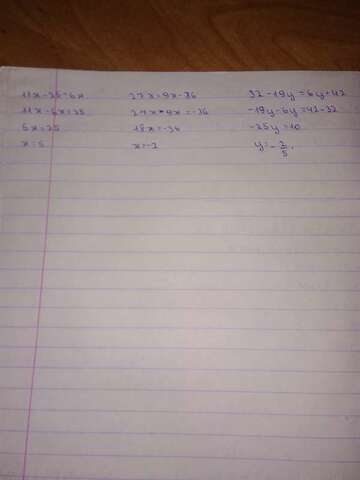 11x-35=6x
11x-6x=35
5x=25
x=5
27x=9x-36
27x*9x=-36
18x=-36
x=-2
32-19y=6y+42
-19y-6y=42-32
-25y=10
y=-2/5.